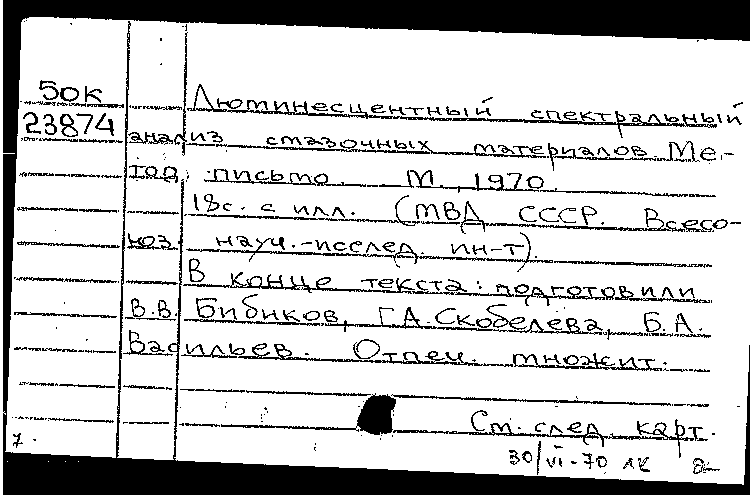 50К Люминесцентный спектральный
23874 анализ смазочных материалов. Ме-
тод. письмо. М., 1970.
18с. с илл. (МВД СССР. Всесо-
юз. науч.-исслед. ин-т).
В конце текста: подготовили
В.В. Бибиков, Г.А. Скобелева, Б.А.
Васильев. Отпеч. множит.
См. след. карт.
7. 30/VI-70 ЛК